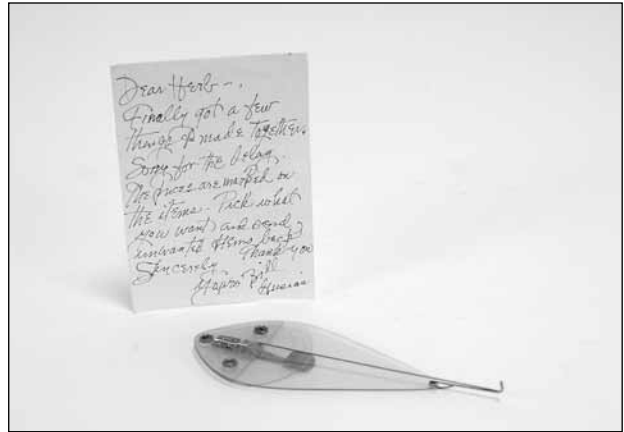 Dear Herb - ,
Finally got a few
things I made together.
Sorry for the delay.
The prices are marked on
the items. Pick what
you want and send
unwanted items back
Sincerely Thank you
Bill